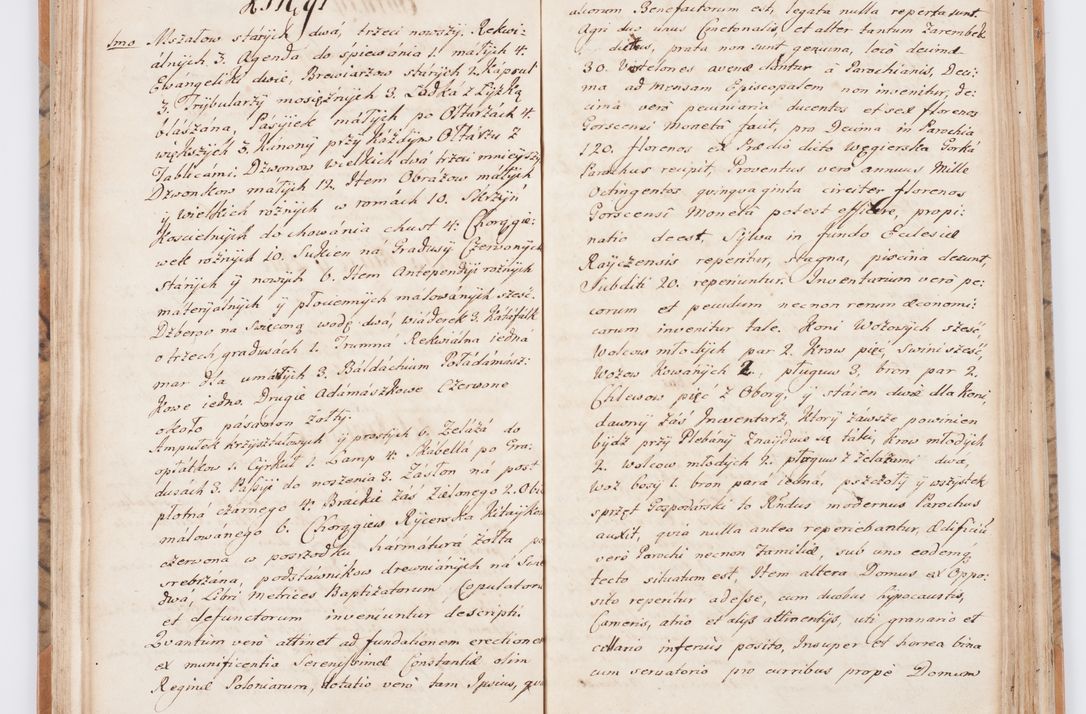 1mo Mszałow stárych dwá, trzeci nowszy. Rekwi:
álnych 3. Agenda do śpiewánia 1. máłych 4.
Ewangeliki dwie, Brewiarzow stárych 2. Kaprut
3. Trybularzy mosiężnych 3. Łodka z Łyżką
blászána, Pásyjek máłych po Ołtarzách 4.
większych 3. Kanony przy káżdym Ołtarzu z
Tablicami. Dzwonow Wielkich dwá trzeci mnieyszy
Dzwonkow małych 12. Item Obrazow máłych
y wielkich roźnych w romách 10. Skrzyń
Koscielnych do chowánia chust 4. Chorągie:
wek roźnych 10. Sukien ná Gradusy Czerwonych
starych y nowych 6. Item Antependij roźnych
máteryálnych y płociennych málowánych sześć.
Dżberow na Swięconą wodę dwá, wiáderek 3. Kátáfalk
o trzech gradusách 1. Trumna Rekwiálna iedna
mar dla umáłych 3. Báldáchium Połádámász:
kowe iedno. Drugie Adamászkowe Czerwone
około pasamon żołty.
Ampułek krzyształowych y prostych 6. Zelázá do
opłatkow 1. Cyrkuł 1. Lamp 4. Skábella po Gra:
dusách 3. Pássyji do noszenia 3. Zásłon ná post
płotna czárnego 4. Brackie zás zielonego 2.
málowánego 6. Chorągiew Rycerska Kitáykow
czerwona w posrzodku hármáturá żołta
srebrzána, podstáwnikow drewniánych ná
dwá, Libri Metrices Baptizatorum Copulatorum
et defunctorum inveniuntur descripti.
Quantum verò attinet ad fundationem erectionem
ex munificentia Serenissimæ Constantiæ olim
Reginæ Poloniarum, dotatio verò tam Ipsius,
aliorum Benefactorum est, legata nulla reperta sunt.
Agri dic unus Cmetonalis, et alter tantum Zarembek
dictus, prata non sunt genuina, loco decimæ
30. Vertelones avenæ dantur à Parochianis, Deci:
ma ad Mensam Episcopalem non invenitur, de:
cima verò pecuniaria ducentos et sex florenos
Gorscensi Monetâ facit, pro Decima in Parochia
120. florenos ex Prædio dicto Węgierska Gorká
Parochus recipit, Proventus verò annuus Mille
Octingentos quinquaginta circiter florenos
Gorscensi Monetâ potest efficere, propi:
natio deest, Sylva in fundo Ecclesiæ
Rayczensis reperitur, stagna, piscina desunt,
Subditi 20. reperiuntur. Inventarium verò pe:
corum et pecudum necnon rerum œconomi:
carum invenitur tale. Koni Wozowych sześć,
Wołcow młodych par 2. Krow pięć, swini sześć,
Wozow kowanych 2, pługuw 3, bron par 2.
Chlewow pięć z Oborą, y stáien dwie dla Koni,
dawny záś Inwentarz, który zawsze powinien
bydź przy Plebány znayduie się táki, krow młodych
2. wołcow młodych 2. płoguw z żelázami dwá,
Woz bosy 1. bron pará iedna, pszczoły y wszystek
sprzęt Gospodárski to Rndus modernus Parochus
auxit, quia nulla antea reperiebantur, Ædificiũ
verò Parochi necnon Familiæ, sub uno eodemq
tecto situatum est, Item altera Domus ex Oppo:
sito reperitur adesse, cum duobus hypocaustis,
Cameris, atrio et alys attinentys, uti granario et
cellario inferius posito, Insuper et horrea bina
cum servatorio pro curribus propè Domum